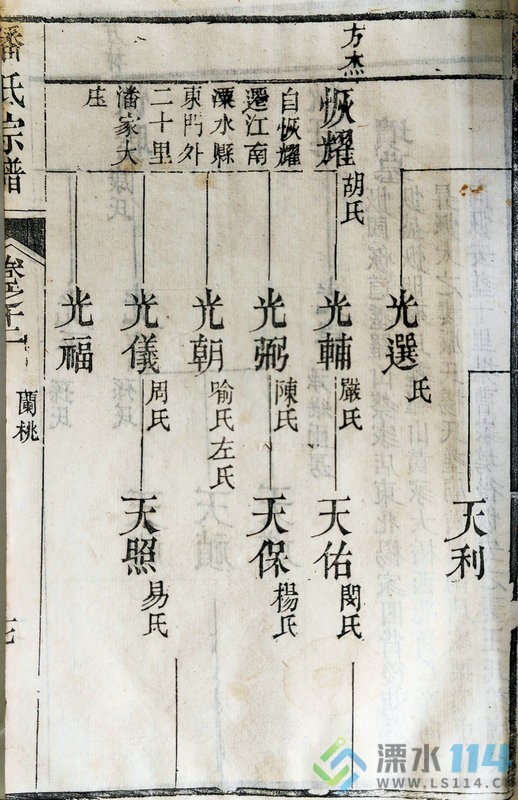 方杰
恢耀
胡氏
自恢耀
遷江南
溧水縣
東門外
二十里
潘家大
庄
光選
氏
光輔
嚴氏
光弼
陳氏
光朝
喻氏左氏
光儀
周氏
光福
天利
天佑
閔氏
天保
楊氏
天照
易氏
潘氏宗譜
卷之十一
蘭桃
溧水114
WWW.LS114.CN